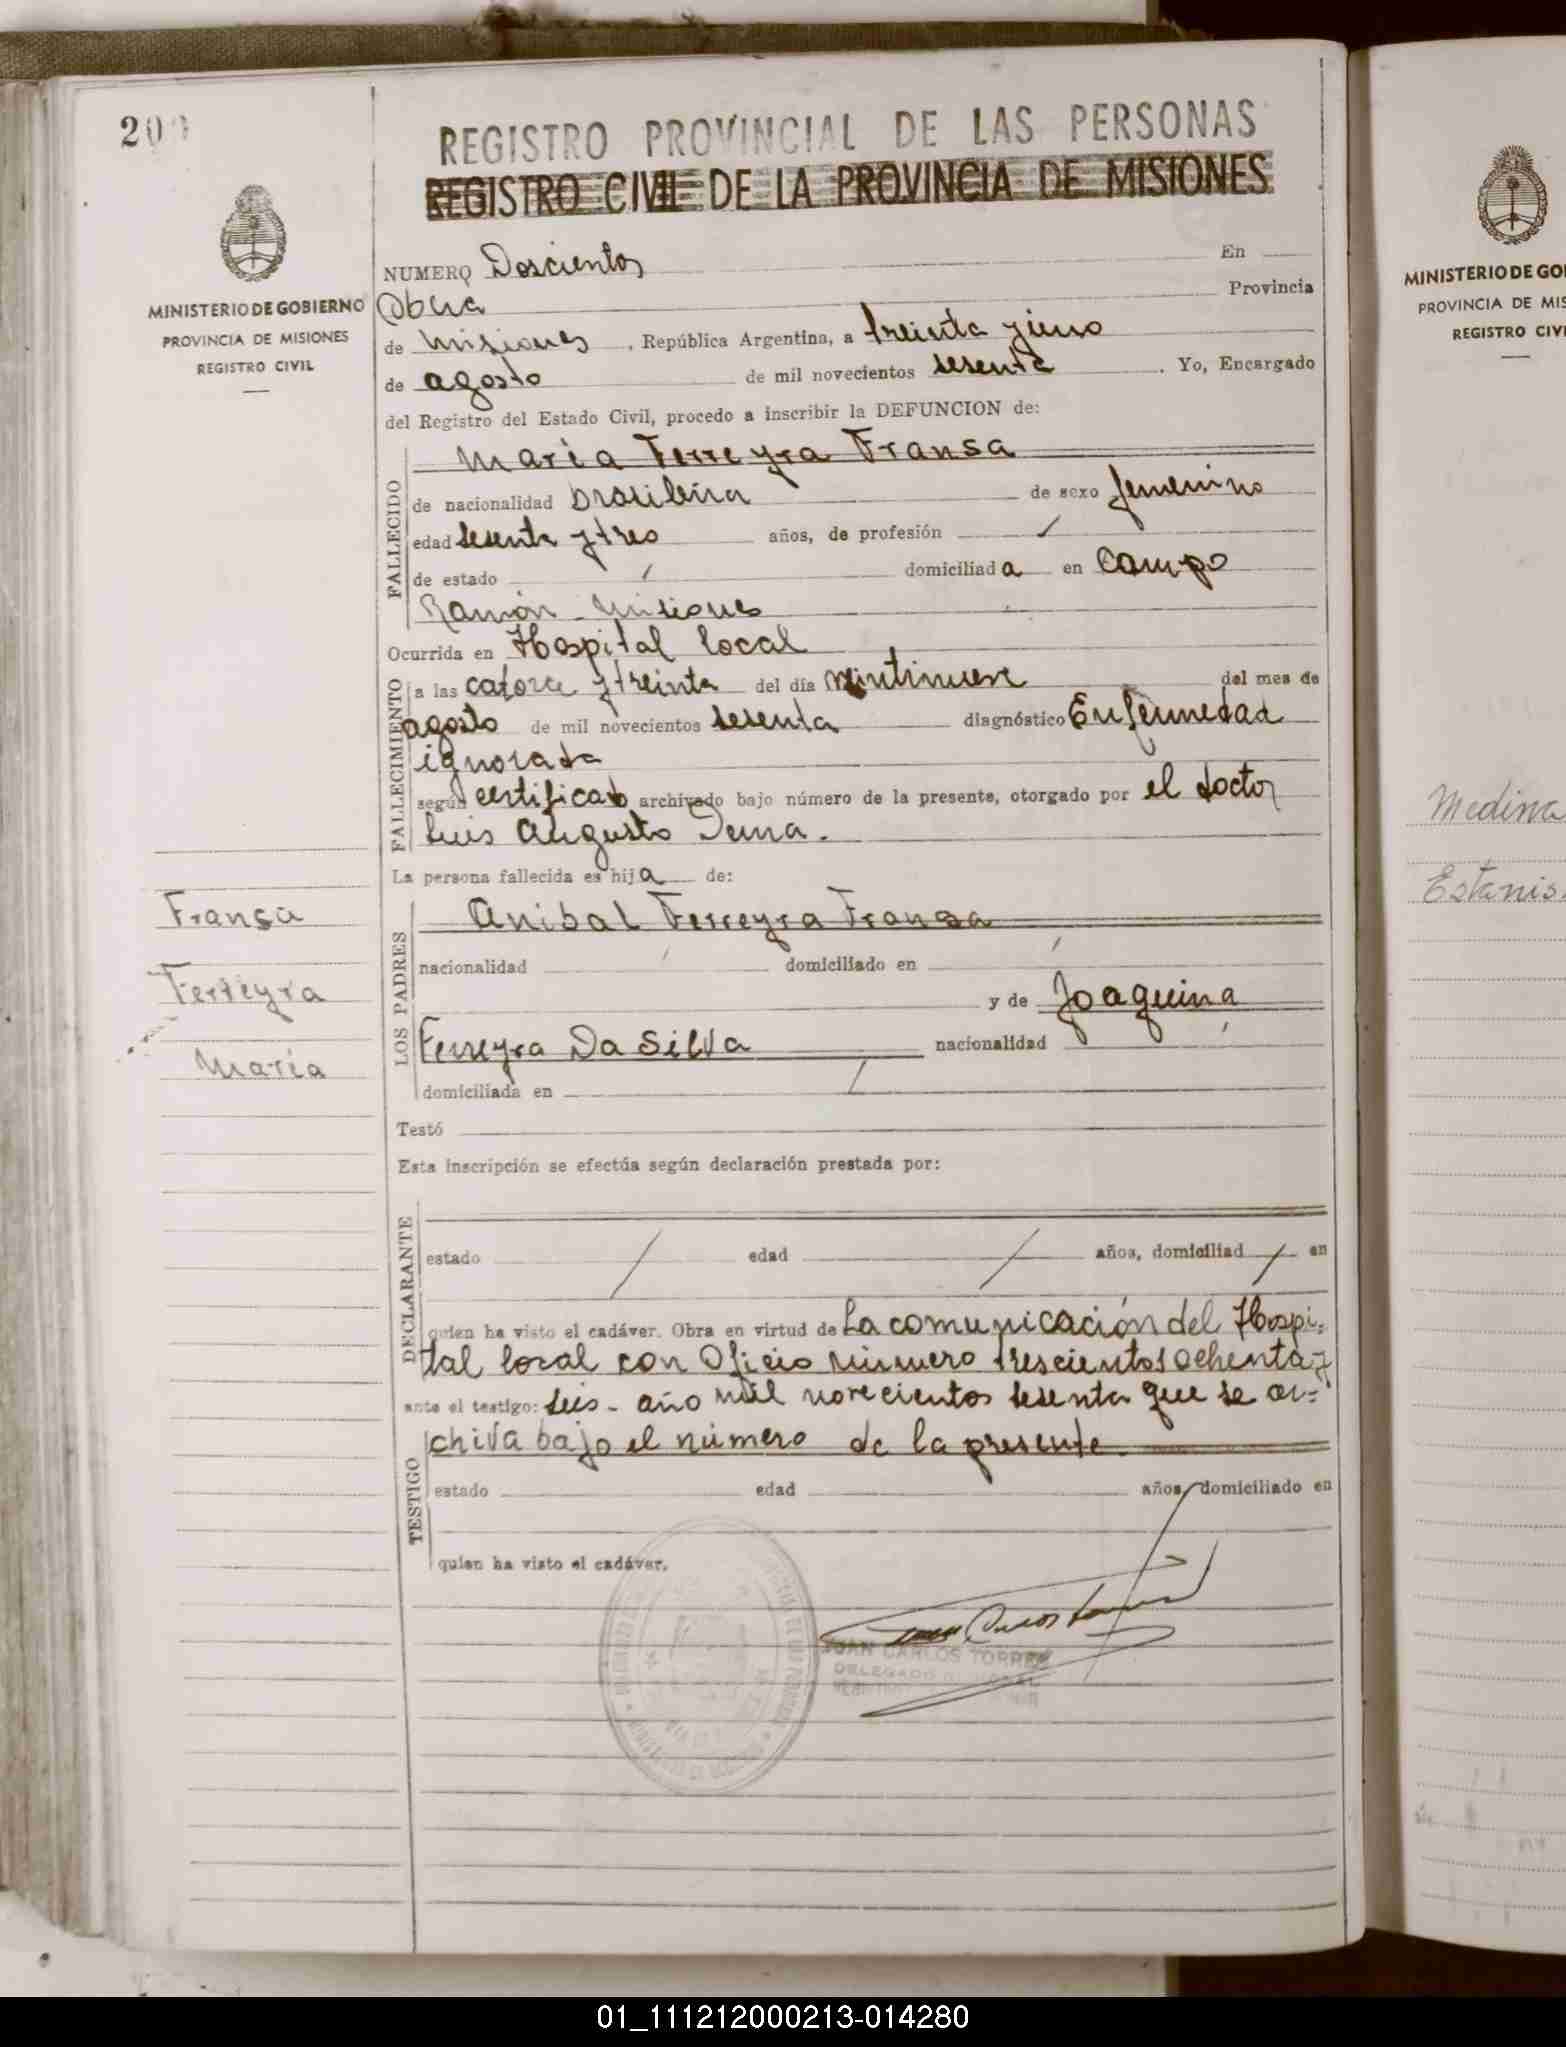 200
REGISTRO PROVINCIAL DE LAS PERSONAS
REGISTRO CIVIL DE LA PROVINCIA DE MISIONES
MINISTERIO DE GOBIERNO
PROVINCIA DE MISIONES
REGISTRO CIVIL
NUMERO Doscientos En
Obera Provincia
de Misiones, República Argentina, a treinta y uno
de agosto de mil novecientos sesenta. Yo, Encargado
del Registro del Estado Civil, procedo a inscribir la DEFUNCION de:
FALLECIDO
María Ferreyra Fransa
de nacionalidad brasileira de sexo femenino
edad sesenta y tres años, de profesión /
de estado / domiciliada en Campo
Ramón - Misiones
Ocurrida en Hospital local
FALLECIMIENTO
a las catorce y treinta del día veintinueve del mes de
agosto de mil novecientos sesenta diagnóstico Enfermedad
ignorada
según certificado archivado bajo número de la presente, otorgado por el doctor
Luis Augusto
La persona fallecida es hija de:
LOS PADRES
Anibal Ferreyra Fransa
nacionalidad / domiciliado en /
y de Joaquina
Ferreyra Da Silva nacionalidad /
domiciliada en /
Testó
Esta inscripción se efectúa según declaración prestada por:
DECLARANTE
estado / edad / años, domiciliad / en
quien ha visto el cadáver. Obra en virtud de La comunicación del Hospi-
tal local con Oficio número trescientos ochenta y
ante el testigo: seis - año mil novecientos sesenta que se ar-
chiva bajo el número de la presente
TESTIGO
estado edad años, domiciliado en
quien ha visto el cadáver.
JUAN CARLOS TORRES
DELEGADO
Fransa
Ferreyra
María
MINISTERIO DE GO
PROVINCIA DE MIS
REGISTRO CIVI
Medina
Estanis
01_111212000213-014280